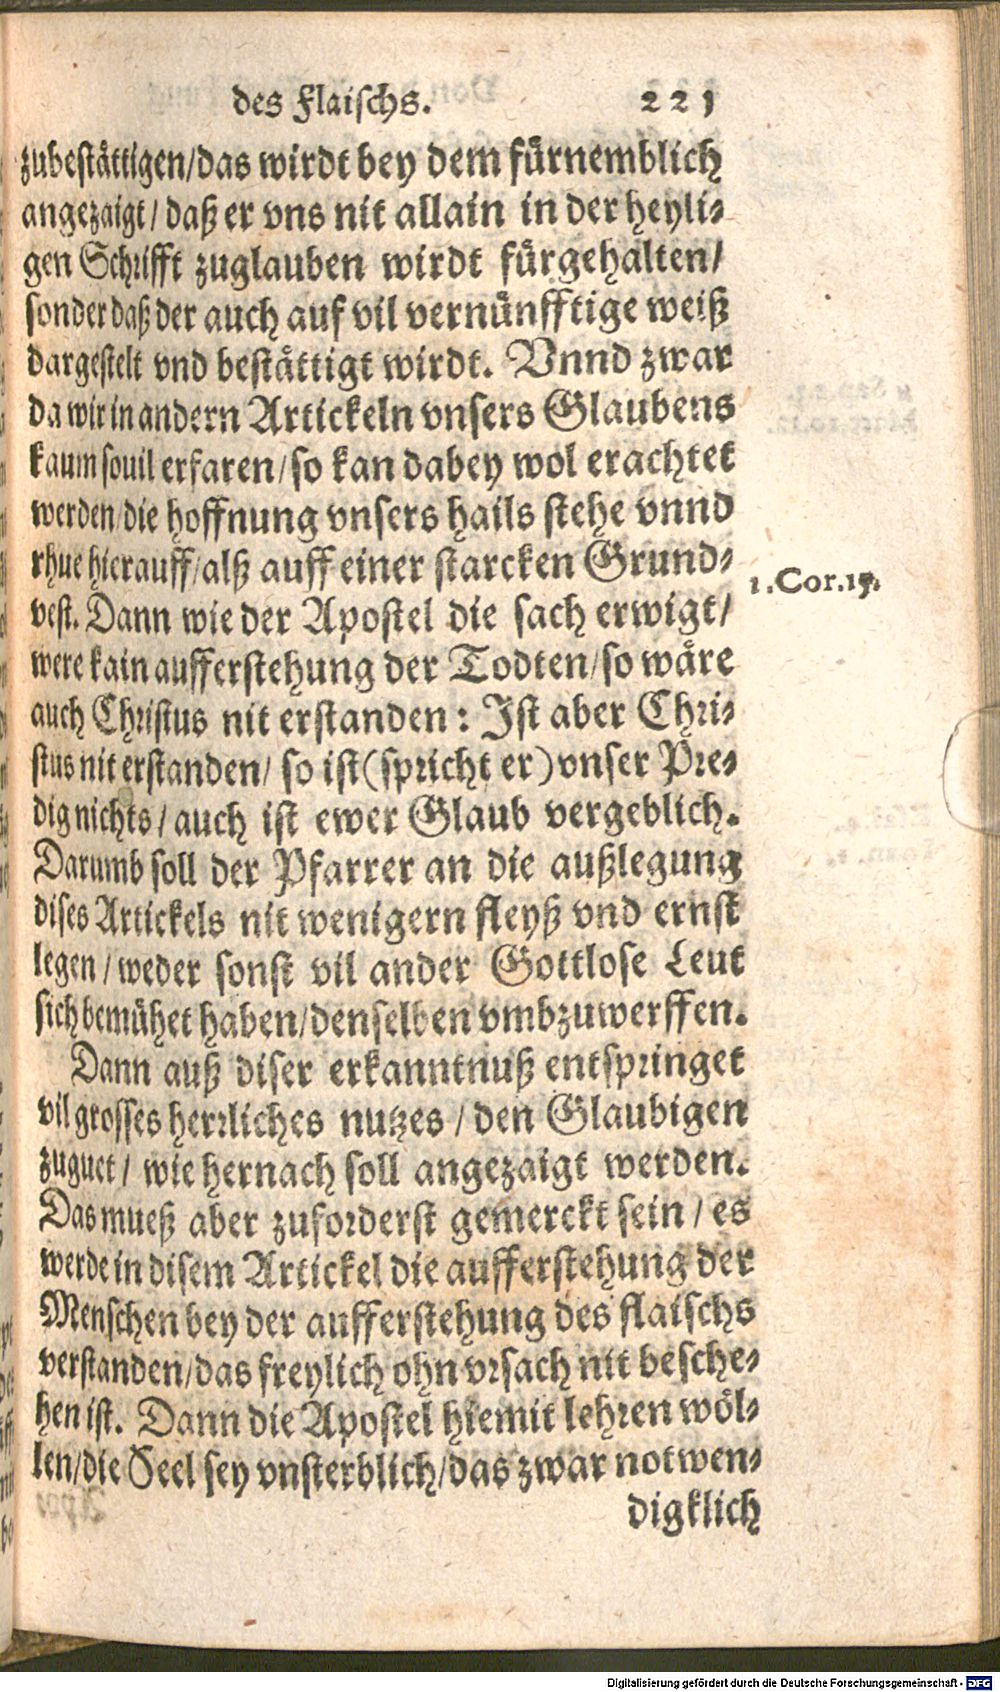 des Flaischs. 221
zubestättigen/das wirdt bey dem fürnemblich
angezaigt/ daß er vns nit allain in der heyli-
gen Schrifft zuglauben wirdt fürgehalten/
sonder daß der auch auf vil vernünfftige weiß
dargestelt vnd bestättigt wirdt. Vnnd zwar
da wir in andern Artickeln vnsers Glaubens
kaum souil erfaren/so kan dabey wol erachtet
werden/die hoffnung vnsers hails stehe vnnd
rhue hierauff/alß auff einer starcken Grund-
vest. Dann wie der Apostel die sach erwigt/
1. Cor.15.
were kain aufferstehung der Todten/so wäre
auch Christus nit erstanden: Ist aber Chri-
stus nit erstanden/ so ist (spricht er) vnser Pre-
dig nichts/auch ist ewer Glaub vergeblich.
Darumb soll der Pfarrer an die außlegung
dises Artickels nit wenigern fleyß vnd ernst
legen/weder sonst vil ander Gottlose Leut
sich bemühet haben/denselben vmbzuwerffen.
Dann auß diser erkanntnuß entspringet
vil grosses herrliches nutzes/den Glaubigen
zuguet/ wie hernach soll angezaigt werden.
Das mueß aber zuforderst gemerckt sein/es
werde in disem Artickel die aufferstehung der
Menschen bey der aufferstehung des flaischs
verstanden/das freylich ohn vrsach nit besche-
hen ist. Dann die Apostel hiemit lehren wöl-
len/die Seel sey vnsterblich/das zwar notwen-
digklich
Digitalisierung gefördert durch die Deutsche Forschungsgemeinschaft - DFG